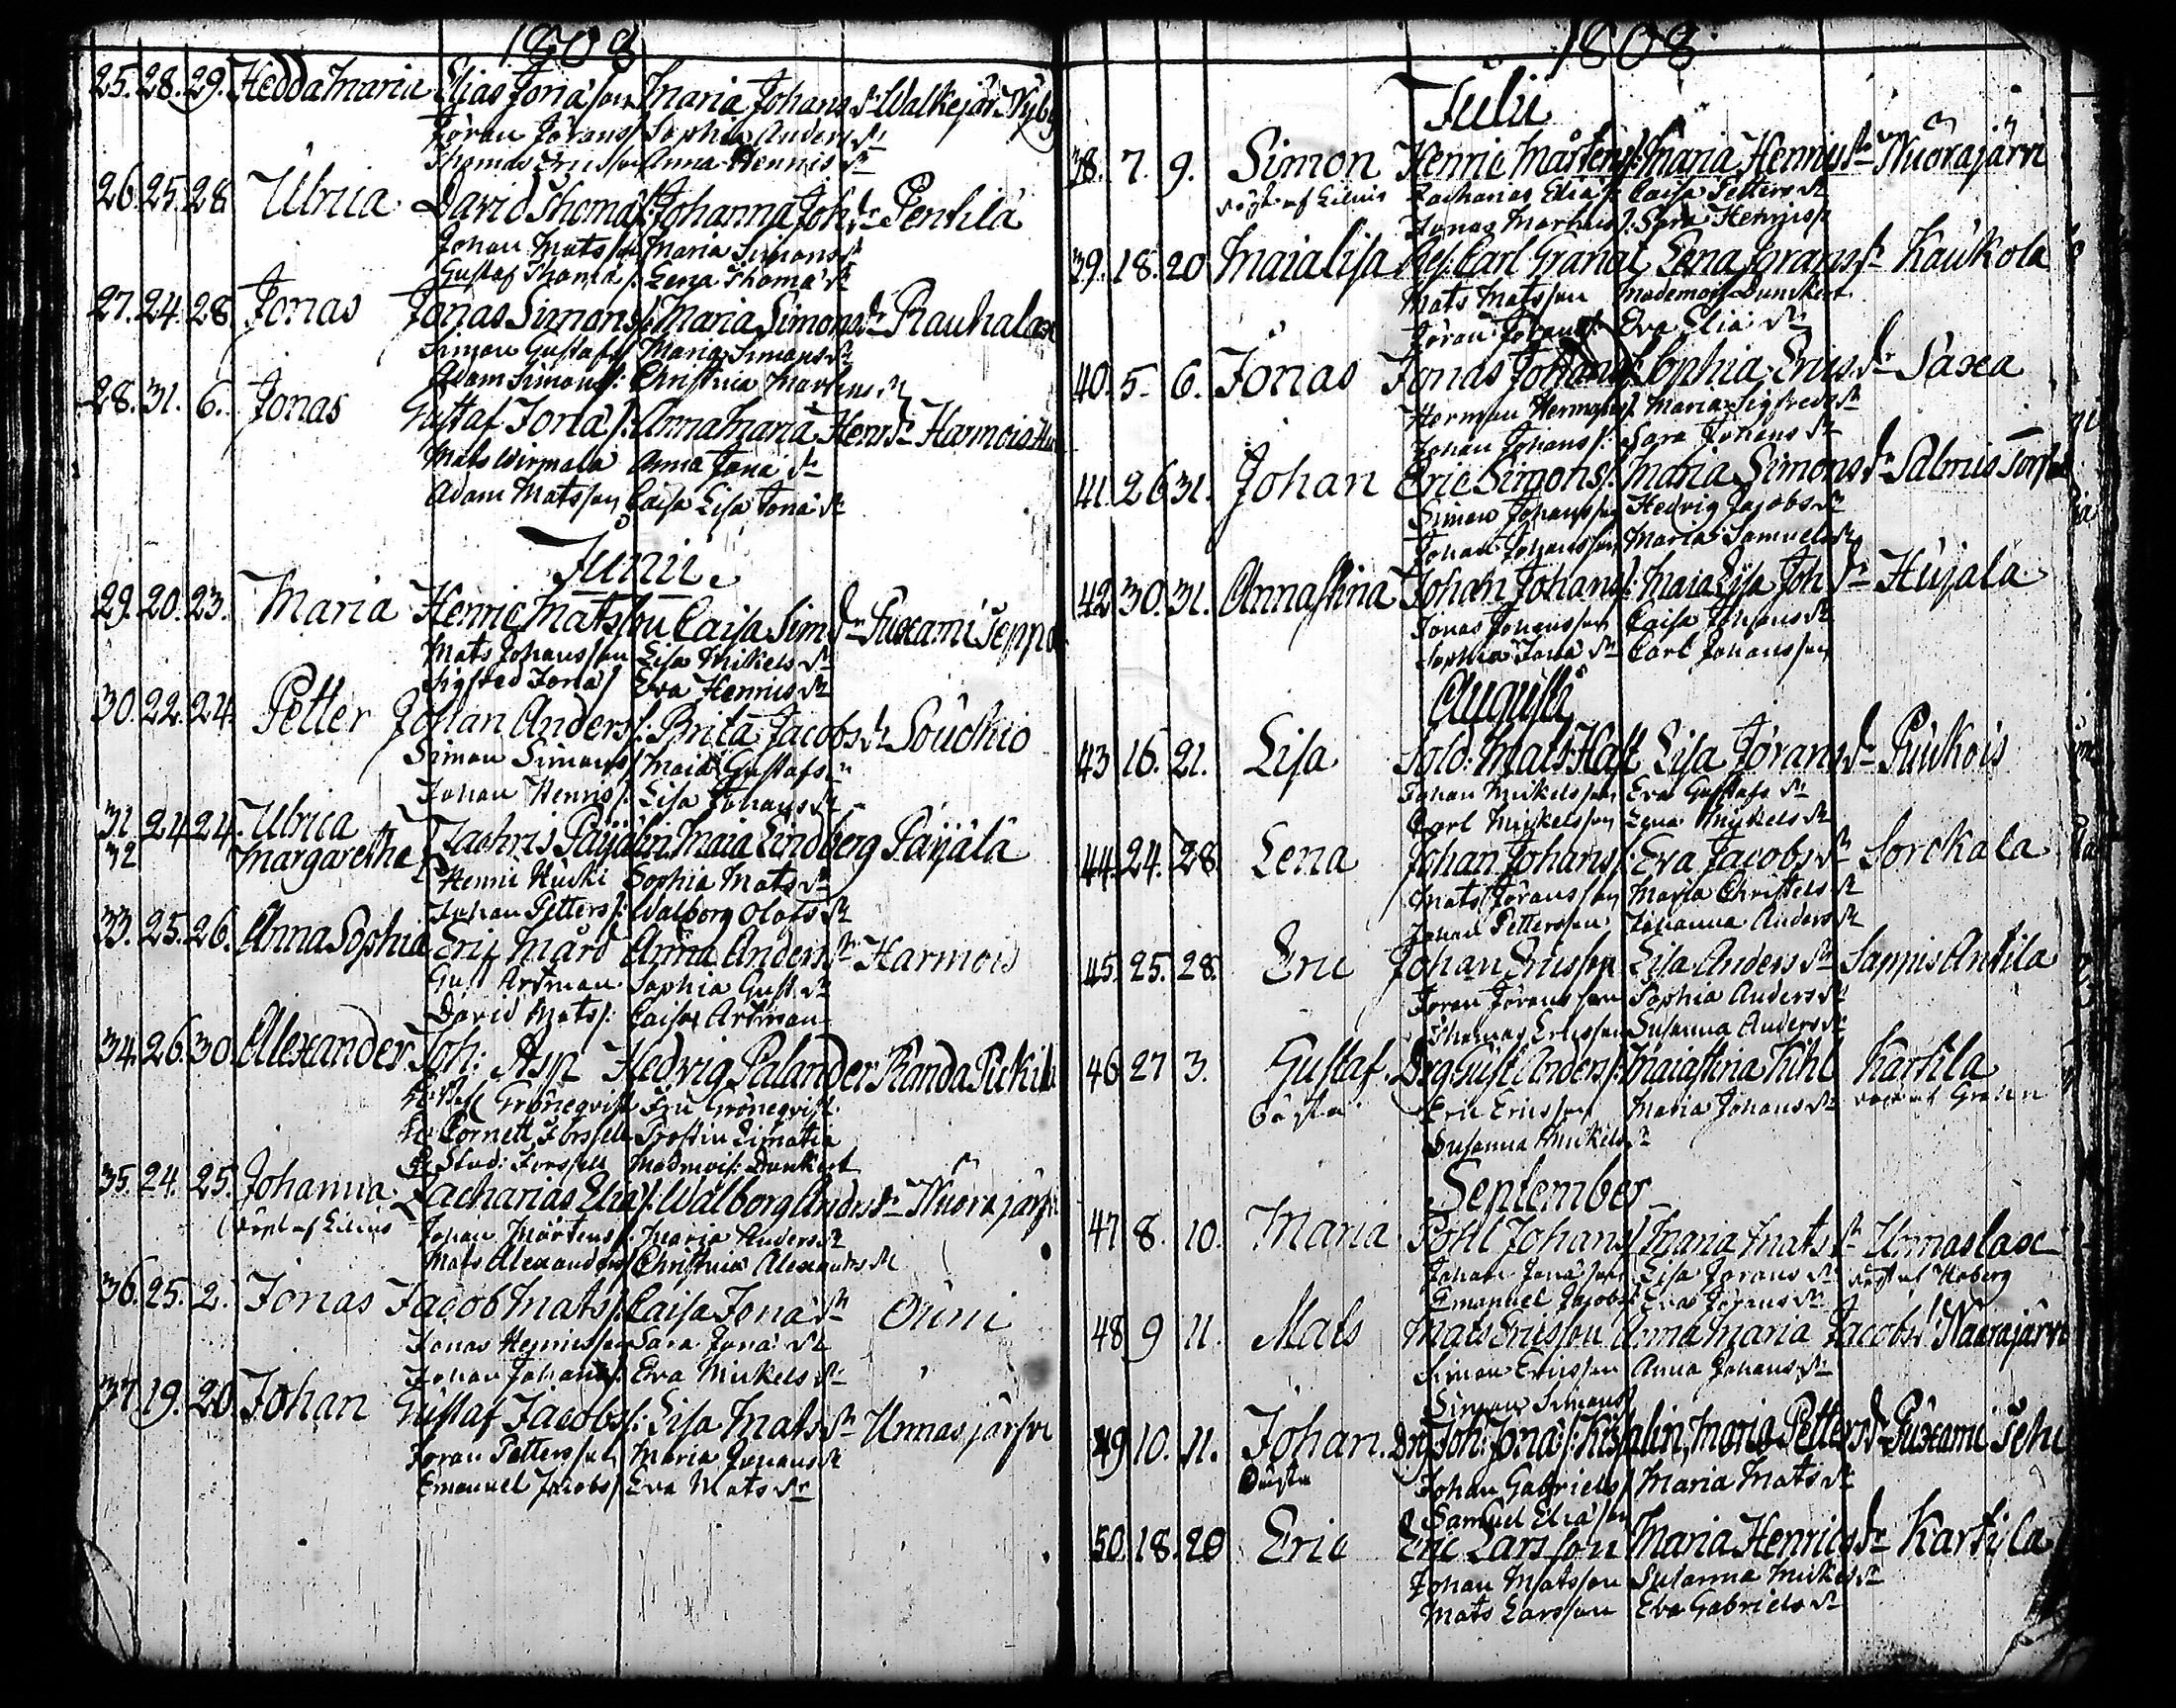 1808
25. 28. 29. Hedda Maria Elias Jona'son Maria Johans dr Walkejär. Nyby
Jöran Jörans s. Sophia Anders dr
Thomas Ericsson Anna Henrics dr
26. 25. 28 Ulrica David Thoma's: Johanna Joh dr Pentilä
Johan Matsson Maria Simons dr
Gustaf Thoma's: Lena Thoma' dr
27. 24. 28 Jonas Jonas Simons s: Maria Simons dr Rauhalax
Simon Gustafs s Maria Simons dr
Adam Simons s: Christina Mårtens dr
28. 31. 6. Jonas Gustaf Jona's: Anna Maria Hen dr Harmois
Mats Wirmala Anna Jona' dr
Adam Matsson Caisa Lisa Jona' dr
Junii.
29. 20. 23. Maria Henric Matsson Caisa Sim dr Puxami Seppä
Mats Johansson Lisa Mikels dr
Sigfred Jona's Eva Henrics dr
30. 22. 24. Petter Johan Anders s: Brita Jacobs dr Souckio
Simon Simons s Maia Gustafs dr
Johan Henrics s: Lisa Johans dr
31. 24. 24. Ulrica
32 Margaretha Zachris Päijälin Maia Lindberg Päijälä
Henric Huski Sophia Mats dr
Johan Petters s: Walborg Olofs dr
33. 25. 26. Anna Sophia Eric Mård Anna Anders dr Harmois
Gust Artman Sophia Gust. dr
David Mats s: Caisa Artman
34. 26. 30. Alexander Joh: Asp Hedvig Palander Randa Puckila
Gröneqvist Fru Grönqvist
Hr Cornett Forssell Prostin Limatia
Hr Stud: Forssell Mademois: Dunkert
35. 24. 25. Johanna Zacharias Elia's: Walborg Anders dr Nuorajärfvi
döpt af Lilius Johan Mårtens s: Maria Anders dr
Mats Alexanders s Christina Alexanders dr
36. 25. 2. Jonas Jacob Mats s: Caisa Jona' dr Ouni
Jonas Henricsson Sara Jona' dr
Johan Johans s: Eva Mickels dr
37. 19. 20. Johan Gustaf Jacobs s: Lisa Mats dr Unnasjärfvi
Jöran Pettersson Maria Johans dr
Emanuel Jacobs s Eva Mats dr
1808
Julii
38. 7. 9. Simon Henric Mårtens s: Maria Henrics dr Nuorajärvi
döpt af Lilius Zacharias Elia's: Caisa Petters dr
Jonas Markus s: Sara Henrics dr
39. 18. 20 Maia Lisa Carl Granat Lena Jörans dr Kaukola
Mats Matsson Mademois Dunckert
Jöran Johans s: Eva Elia' dr
40. 5. 6. Jonas Jonas Johans s: Sophia Erics dr Säxä
Herman Hermans s. Maria Sigfreds dr
Johan Johans s: Sara Johans dr
41. 26. 31. Johan Eric Simons s: Maria Simons dr Salmis
Simon Johansson Hedvig Jacobs dr
Johan Johansson Maria Samuels dr
42. 30. 31. Anna Stina Johan Johans s: Maia Lisa Joh dr Hujala
Jonas Johansson Caisa Johans dr
Sophia Jona' dr Carl Johansson
Augusti
43 16. 21. Lisa Sold: Mats Haft Lisa Jörans dr Puukois
Johan Mickelsson Eva Gustafs dr
Carl Mickelsson Lena Mickels dr
44. 24. 28. Lena Johan Johans s: Eva Jacobs dr Sorckala
Mats Jöransson Maria Christers dr
Johan Pettersson Johanna Anders dr
45. 25. 28. Eric Johan Ericsson Lisa Anders dr Sappis Antila
Jöran Jöransson Sophia Anders dr
Thomas Ericsson Susanna Anders dr
46 27 3. Gustaf Drg Gust. Anders s: Maia Stina Kihl Kartila
Oägta Eric Ericsson Maria Johans dr döpt af Grahn
Susanna Mickels dr
September
47 8. 10. Maria Pohl Johans s Maria Mats dr Unnaslax
Johan Jona'son Lisa Jörans dr döpt af Hoberg
Emanuel Jacobs s: Eva Jörans dr
48 9 11. Mats Mats Ericsson Anna Maria Jacobs dr Naarajärvi
Simon Ericsson Anna Johans dr
Simon Simons s
49 10. 11. Johan Drg Joh: Jona's: Maria Petters dr Puxami
Oägta Johan Gabriels s Maria Mats dr
Samuel Elia'son
50. 18. 20 Eric Eric Larsson Maria Henrics dr Kartila
Johan Matsson Susanna Mickels dr
Mats Larsson Eva Gabriels dr